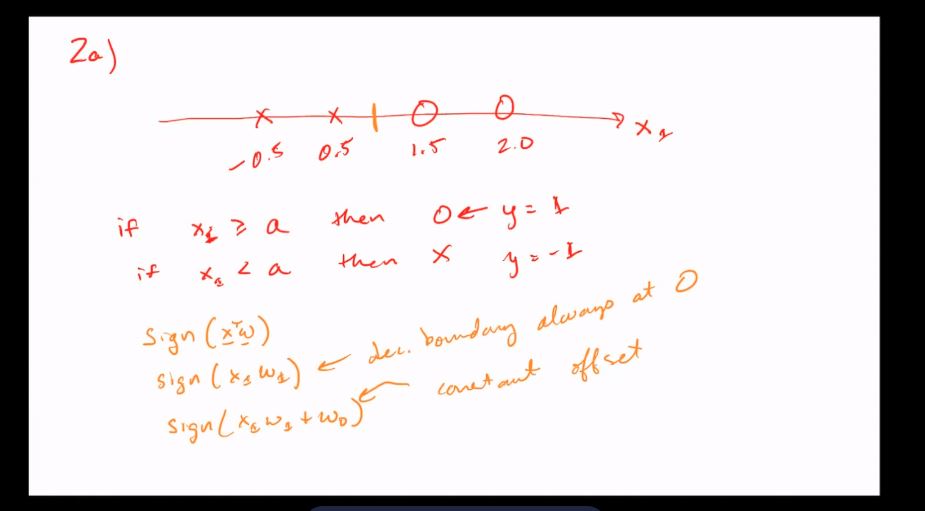 2a)
x₁
-0.5 0.5 1.5 2.0
if x₁ ≥ a then O ← y = 1
if x₁ < a then X y = -1
sign(xᵀw)
sign(x₁w₁) ← dec. boundary always at 0
sign(x₁w₁ + w₀) ← constant offset